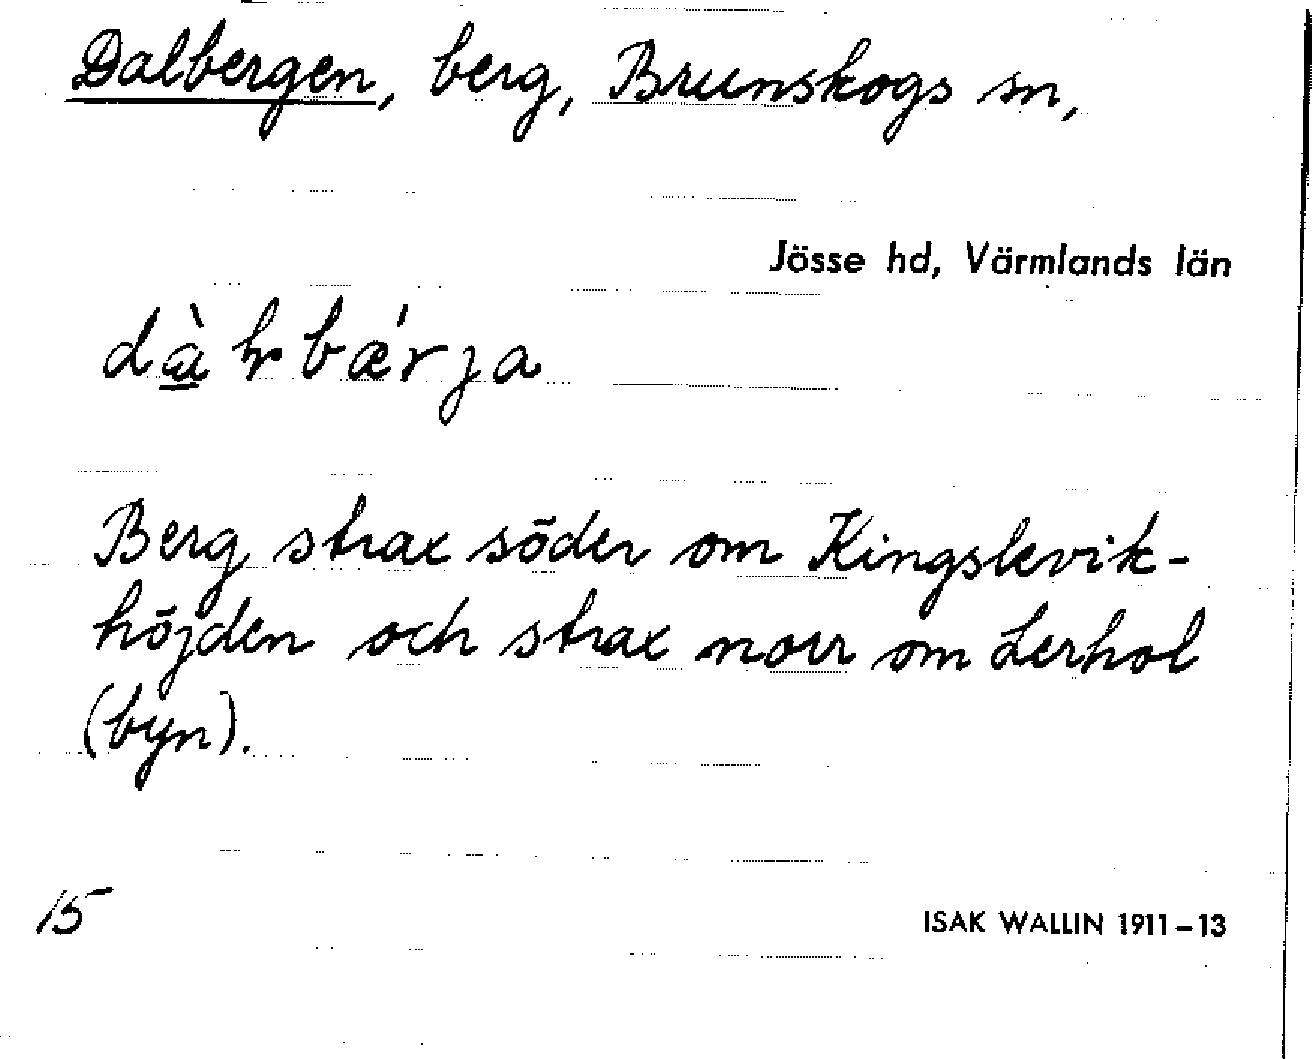 Dalbergen, berg, Brunskogs sn,
Jösse hd, Värmlands län
Berg strax söder om Kingselvik-
höjden och strax norr om Lerhol
(byn).
15
ISAK WALLIN 1911–13